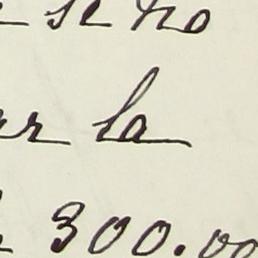 se no
ar la
300.00